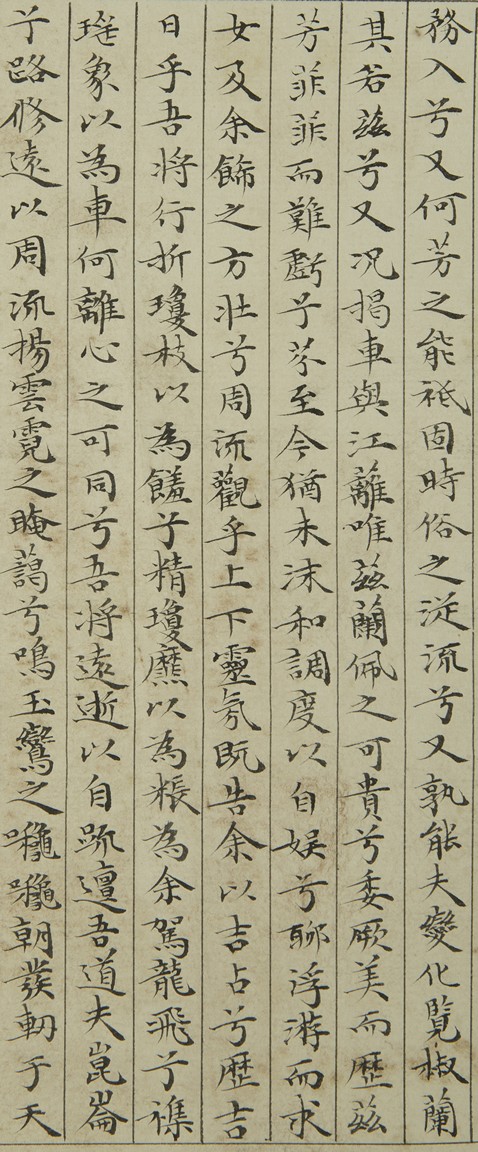 務入兮又何芳之能祗固時俗之從流兮又孰能夫變化覽椒蘭
其若茲兮又況揭車與江離唯茲蘭佩之可貴兮委厥美而歷茲
芳菲菲而難虧兮芬至今猶未沬和調度以自娛兮聊浮游而求
女及余飾之方壯兮周流觀乎上下靈氛既告余以吉占兮歷吉
日乎吾將行折瓊枝以為饈兮精瓊爢以為粻為余駕龍飛兮襍
瑤象以為車何離心之可同兮吾將遠逝以自疏邅吾道夫崑崙
兮路修遠以周流揚雲霓之晻藹兮鳴玉鸞之啾啾朝發軔于天